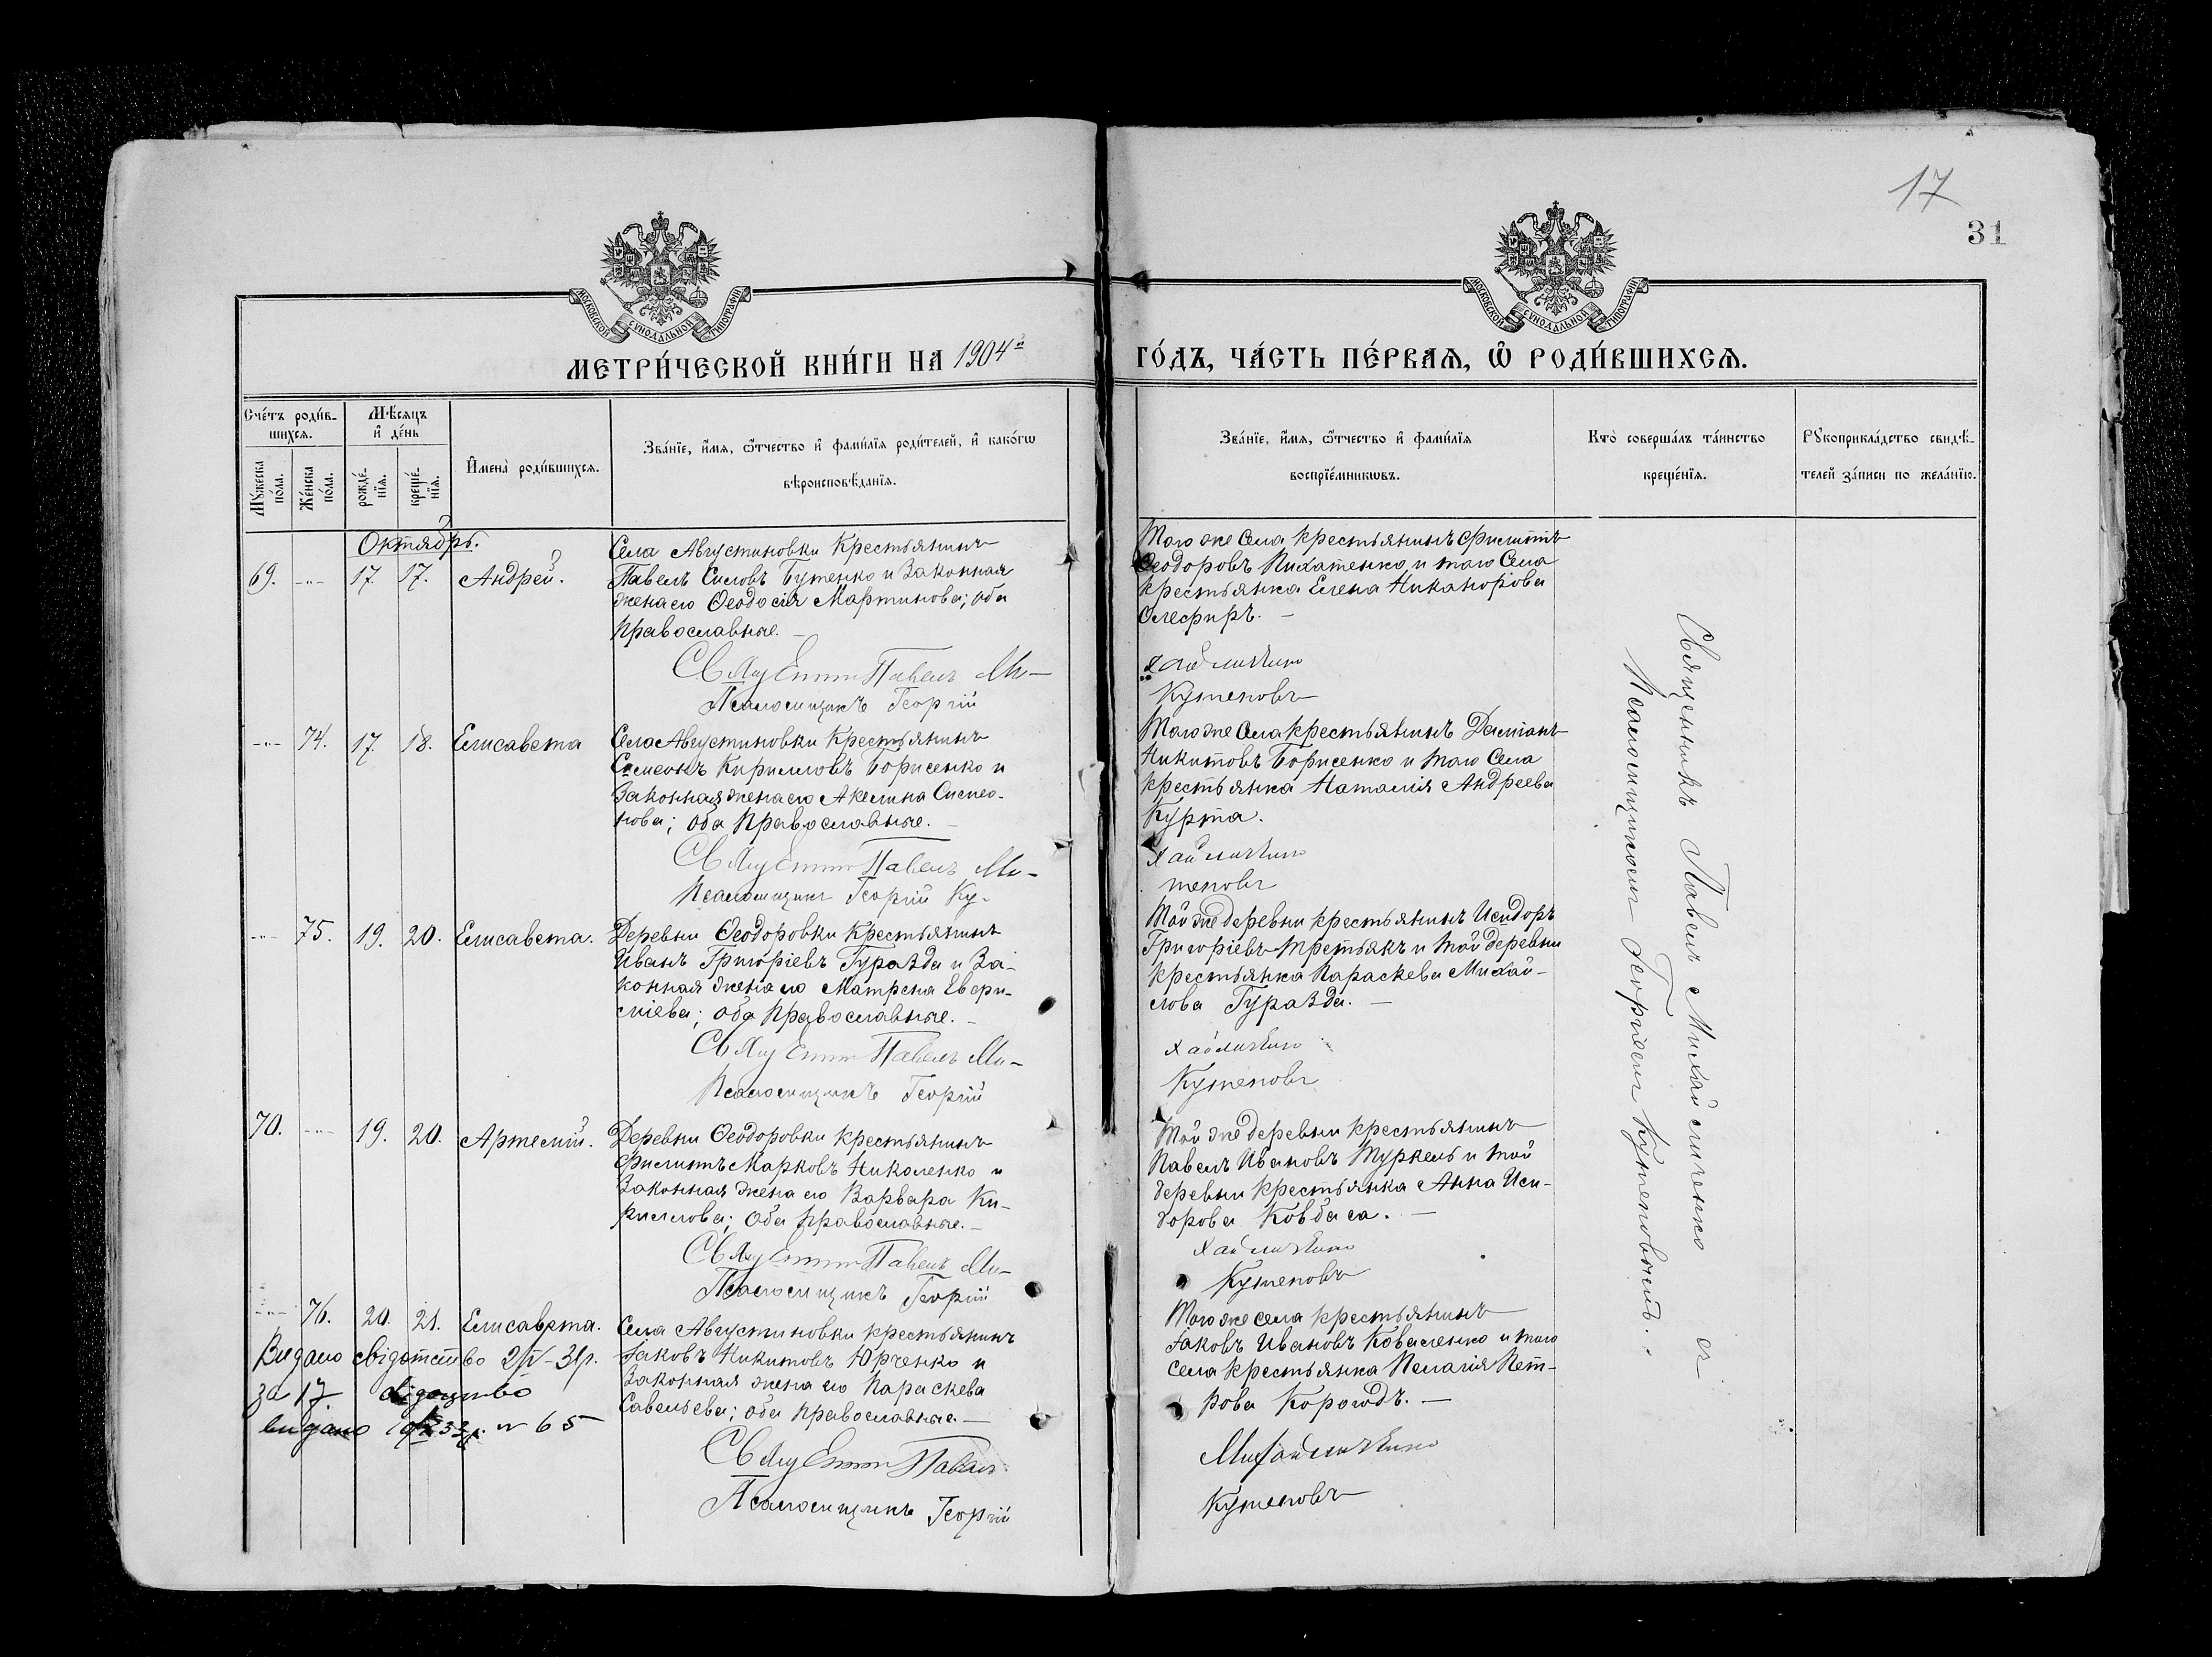 17
31
МОСКОВСКОЙ СѴНОДАЛЬНОЙ ТИПОГРАФІИ
МОСКОВСКОЙ СѴНОДАЛЬНОЙ ТИПОГРАФІИ
МЕТРИ́ЧЕСКОЙ КНИ́ГИ НА 1904й
ГО́ДЪ, ЧА́СТЬ ПЕ́РВАЯ, Ѽ РОДИ́ВШИХСЯ.
Сче́тъ роди́в-
шихся.
Мꙋ́жеска по́ла.
Же́нска по́ла.
Мѣ́сяцъ
и҆ де́нь
рожде́-
нїя.
креще́-
нїя.
И҆мена̀ роди́вшихся.
Зва́нїе, и҆́мя, ѻ҆́тчество и҆ фами́лїя роди́телей, и҆ како́гѡ
вѣроисповѣ́данїя.
Зва́нїе, и҆́мя, ѻ҆́тчество и҆ фами́лїя
воспрїе́мникѡвъ.
Кто̀ соверша́лъ та́инство
креще́нїя.
Рꙋкоприкла́дство свидѣ́-
телей за́писи по жела́нїю.
Октябрь.
69. -"- 17. 17. Андрей.
Села Августиновки Крестьянинъ
Павелъ Силовъ Бутенко и Законная
жена его Ѳеодосія Мартинова; оба
Православные. —
Священникъ Павелъ Ми-
Псаломщикъ Георгій
Того же Села крестьянинъ Филиппъ
Ѳеодоровъ Лихатенко и того Села
крестьянка Елена Никанорова
Олефиръ. —
хайличенко
Кутеповъ
-"- 74. 17. 18. Елисавета
Села Августиновки Крестьянинъ
Симеонъ Кирилловъ Борисенко и
Законная жена его Акелина Симео-
нова; оба Православные. —
Священникъ Павелъ Ми-
Псаломщикъ Георгій Ку-
Того же Села крестьянинъ Даміанъ
Никитовъ Борисенко и того Села
крестьянка Наталія Андреева
Курта.
хайличенко
теповъ
-"- 75. 19. 20. Елисавета.
Деревни Ѳеодоровки Крестьянинъ
Иванъ Григоріевъ Гуразда и За-
конная жена его Матрена Евери-
стіева; оба Православные. —
Священникъ Павелъ Ми-
Псаломщикъ Георгій
Той же деревни крестьянинъ Исидоръ
Григоріевъ Третьякъ и той деревни
крестьянка Параскева Михай-
лова Гуразда. —
хайличенко
Кутеповъ
70. -"- 19. 20. Артемій.
Деревни Ѳеодоровки крестьянинъ
Филиппъ Марковъ Николенко и
Законная жена его Варвара Ки-
риллова; оба православные. —
Священникъ Павелъ Ми-
Псаломщикъ Георгій
Той же деревни крестьянинъ
Павелъ Ивановъ Туркель и той
деревни крестьянка Анна Иси-
дорова Ковбаса. —
хайличенко
Кутеповъ
-"- 76. 20. 21. Елисавета.
Села Августиновки крестьянинъ
Іаковъ Никитовъ Юрченко и
Законная жена его Параскева
Савельева; оба православные —
Священникъ Павелъ
Псаломщикъ Георгій
Того же села крестьянинъ
Іаковъ Ивановъ Коваленко и того
села крестьянка Пелагія Пет-
рова Корогодъ. —
Михайличенко
Кутеповъ
Видано свідотство 2/IV-31р.
за 17 свідоцтво
видано 33р. № 65
Священникъ Павелъ Михайличенко съ
Псаломщикомъ Георгіемъ Кутеповымъ.